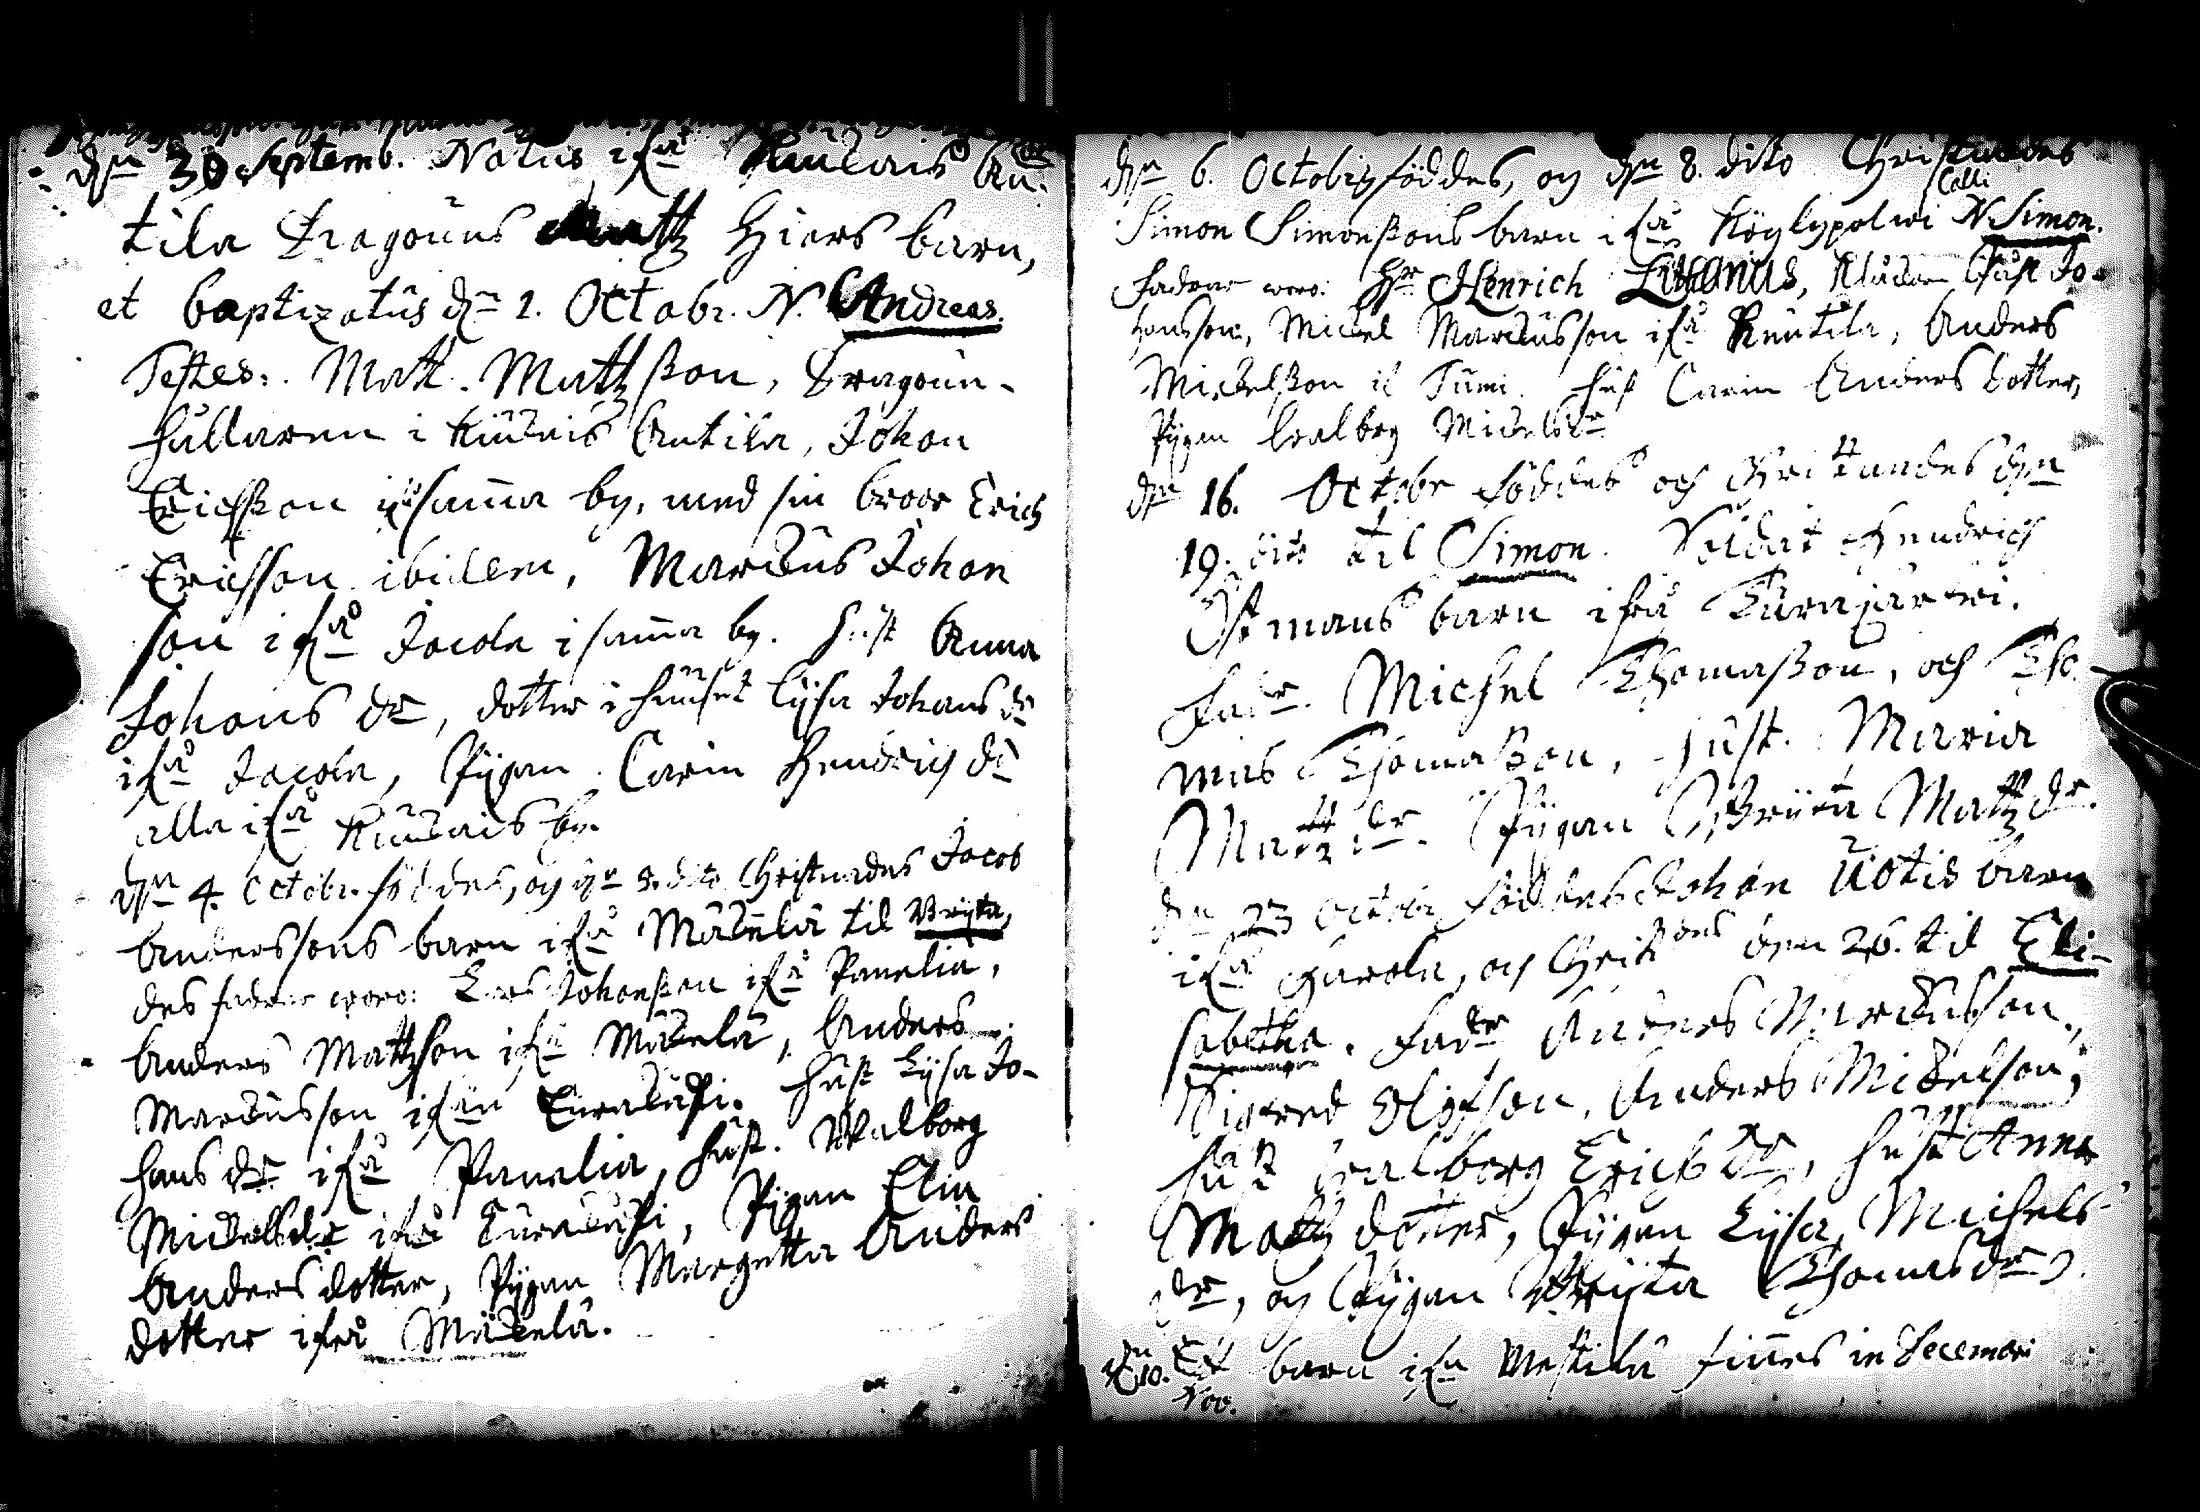 dn 30 Septemb. Natus ifrå Kiukais An-
tila Dragouns Matz Hiers barn,
et baptizatus dn 1. Octobr. N. Andreas.
Testes. Matt. Matzßon, Dragoun-
hållaren i Kiukais Antila, Johan
Erichßon i samma by, med sin broor Erich
Erichsson ibidem, Marcus Johan
son ifrå Jacola i samma by. hust Anna
Johans dr, dotter i huuset Lijsa Johans dr
ifrå Jacola, Pijgan Carin Hendrich dr
alla ifrå Kiukais by.
dn 4. Octobr. föddes, och dn 8. dito Christnades Jacob
Anderssons barn ifrå Mäkelä til Brijta,
des fadrar woro: Lars Johanßon ifrå Panelia,
Anders Matzson ifrå Mäkelä, Anders
Marcusson ifrån Eurakåski. hust Lijsa Jo-
hans dr ifrå Panelia, hust. Walborg
Mickelsdr ifrå Eurakåski, Pijgan Elin
Anders dotter, Pijgan Margetta Anders
dotter ifrå Mäkelä.
dn 6. Octobis föddes, och dn 8. dito Christnades
Simon Simonßons barn ifrå Köylypolwi N Simon.
Calli
Fadrar woro: Hr Henrich Jo-
hansson, Mickel Marcusson ifrå Runtila, Anders
Mickelßon i Tumi. hust Carin Anders dotter,
Pijgan Walborg Mickelsdr
dn 16. Octobr föddes och Christnandes dn
19. dito til Simon. Soldat Hendrich
Östmans barn ifrå Turajärwi.
Fadr. Michel Thomaßon, och Tho-
mas Thomaßon, hust. Maria
Matz dr. Pijgan Brijta Matz dr.
dn 23 Octobr föddes Johan Uotis barn
ifrå Harola, och Christdes den 26. til Eli-
sabetha. Fadr Anders Marcusson,
Sigfred Olofson, Anders Mickelson,
hust Walborg Erichs dr, hust Anna
Matz dotter, Pijgan Lijsa Michels
dr, och Pijgan Brijta Thomasdr
dn 10. Nov. Et barn ifrå Mestilä finnes in Decembri